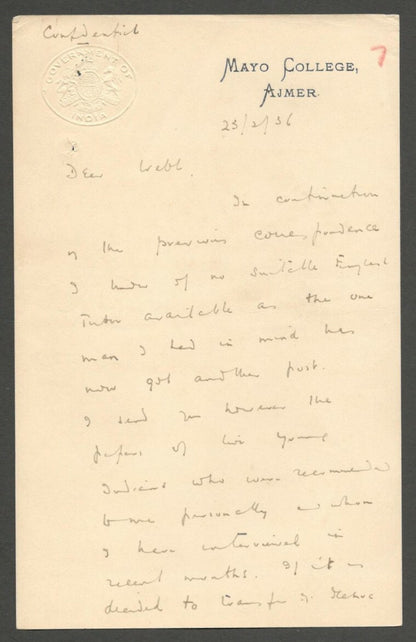 Confidential
GOVERNMENT OF
INDIA
7
MAYO COLLEGE,
AJMER.
23/2/36
Dear Webb.
In continuation
of the previous correspondence
I know of no suitable English
Tutor available as the one
man I had in mind has
now got another post.
I send you however the
papers of two young
Indians who were recommended
to me personally and whom
I have interviewed in
recent months. If it is
decided to transfer